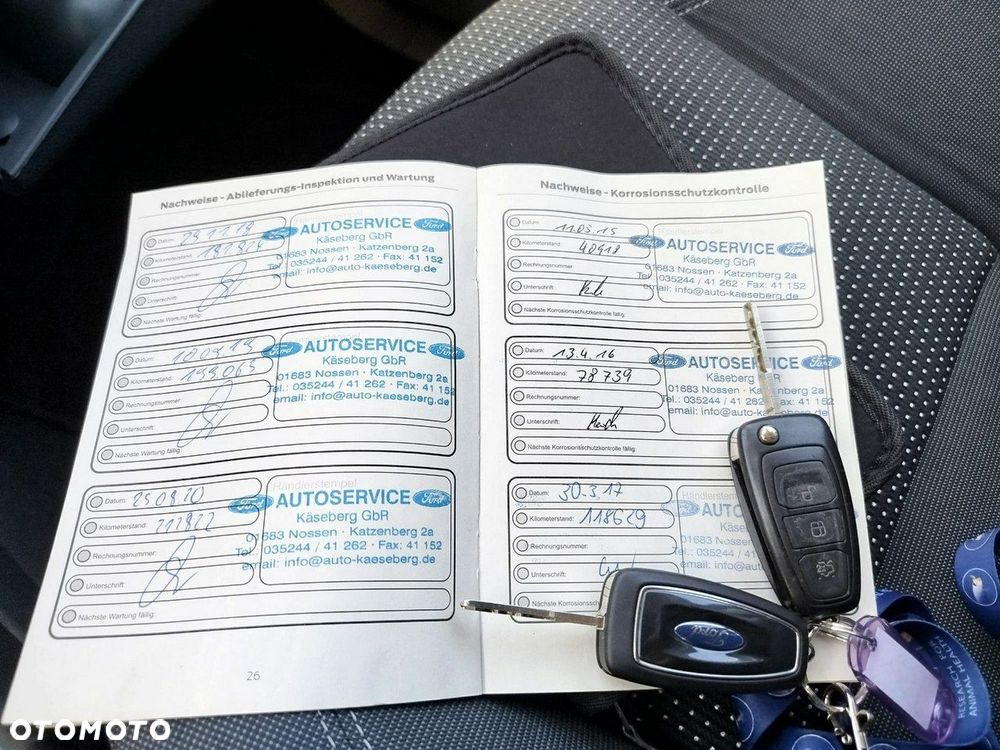 Nachweise - Ablieferungs-Inspektion und Wartung
Datum:
Kilometerstand:
Rechnungsnummer:
Unterschrift:
Nächste Wartung fällig:
AUTOSERVICE Ford
Käseberg GbR
01683 Nossen · Katzenberg 2a
035244 / 41 262 · Fax: 41 152
email: info@auto-kaeseberg.de
Datum:
Kilometerstand: 199065
Rechnungsnummer:
Unterschrift:
Nächste Wartung fällig:
Ford AUTOSERVICE Ford
Käseberg GbR
01683 Nossen · Katzenberg 2a
Tel.: 035244 / 41 262 · Fax: 41 152
email: info@auto-kaeseberg.de
Datum: 25.09.20
Kilometerstand: 211822
Rechnungsnummer:
Unterschrift:
Nächste Wartung fällig:
Händlerstempel
Ford AUTOSERVICE Ford
Käseberg GbR
01683 Nossen · Katzenberg 2a
Tel.: 035244 / 41 262 · Fax: 41 152
email: info@auto-kaeseberg.de
26
Nachweise - Korrosionsschutzkontrolle
Datum: 11.03.15
Kilometerstand: 40918
Rechnungsnummer
Unterschrift:
Nächste Korrosionsschutzkontrolle fällig:
Händlerstempel
Ford AUTOSERVICE Ford
Käseberg GbR
01683 Nossen · Katzenberg 2a
Tel.: 035244 / 41 262 · Fax: 41 152
email: info@auto-kaeseberg.de
Datum: 13.4.16
Kilometerstand: 78739
Rechnungsnummer:
Unterschrift:
Nächste Korrosionsschutzkontrolle fällig:
Ford AUTOSERVICE Ford
Käseberg
01683 Nossen · Katzenberg 2a
Tel.: 035244 / 41 262 · Fax: 41 152
email: info@auto-kaeseberg.de
Datum: 30.3.17
Kilometerstand: 118629
Rechnungsnummer:
Unterschrift:
Nächste Korrosionssch
Händlerstem
Ford AU
01683 No
Tel.: 03524
email: in
Ford
RESEARCH FOR
ANIMAL HEALTH
OTOMOTO